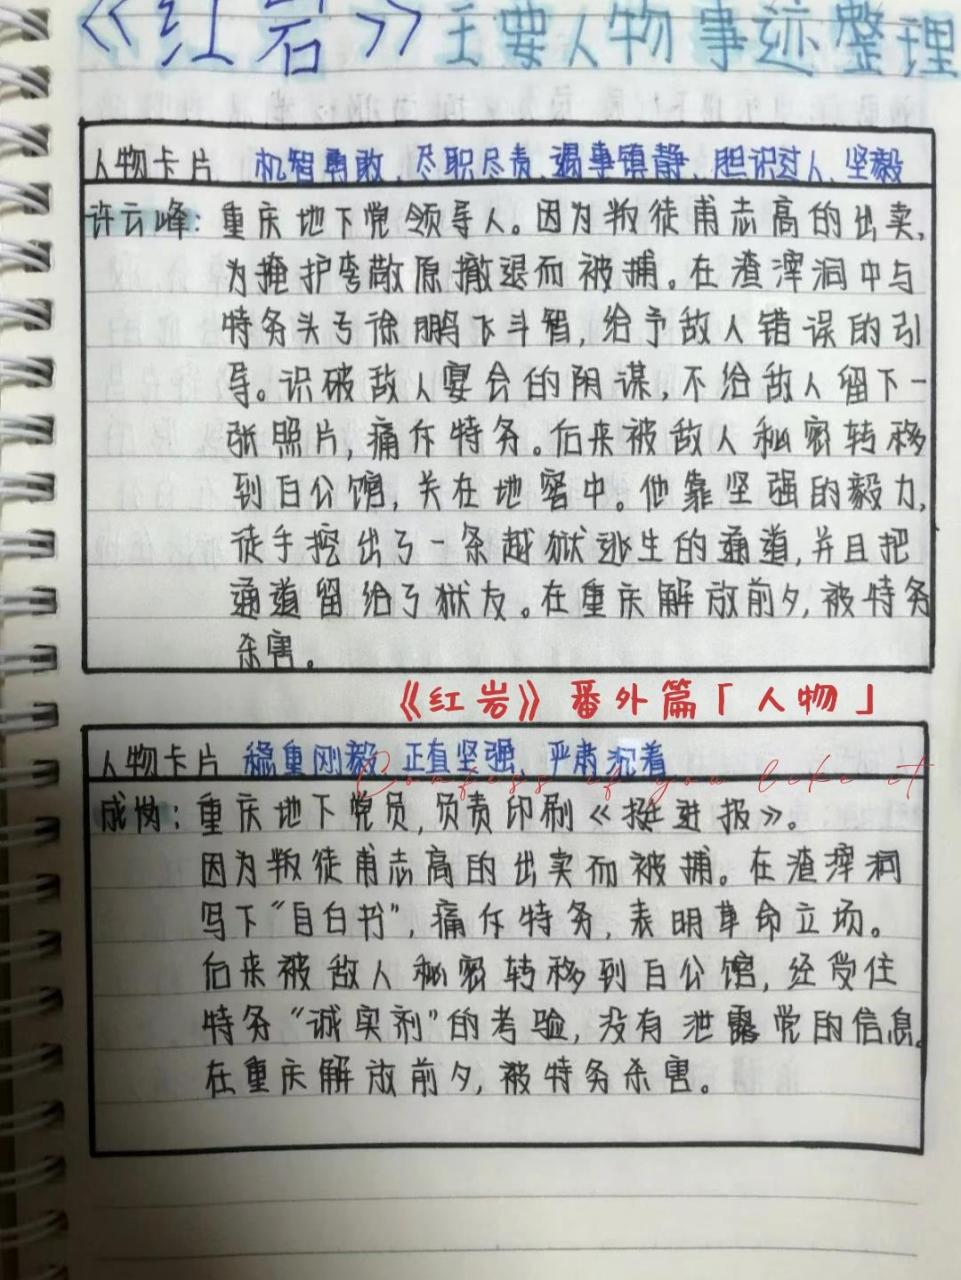 《红岩》主要人物事迹整理
人物卡片 机智勇敢、尽职尽责、遇事镇静、胆识过人、坚毅
许云峰：重庆地下党领导人。因为叛徒甫志高的出卖，
为掩护李敬原撤退而被捕。在渣滓洞中与
特务头子徐鹏飞斗智，给予敌人错误的引
导。识破敌人宴会的阴谋，不给敌人留下一
张照片，痛斥特务。后来被敌人秘密转移
到白公馆，关在地窖中。他靠坚强的毅力，
徒手挖出了一条越狱逃生的通道，并且把
通道留给了狱友。在重庆解放前夕，被特务
杀害。
《红岩》番外篇「人物」
人物卡片 稳重刚毅、正直坚强、严肃沉着
Confess if you like it
成岗：重庆地下党员，负责印刷《挺进报》。
因为叛徒甫志高的出卖而被捕。在渣滓洞
写下“自白书”，痛斥特务，表明革命立场。
后来被敌人秘密转移到白公馆，经受住
特务“诚实剂”的考验，没有泄露党的信息。
在重庆解放前夕，被特务杀害。